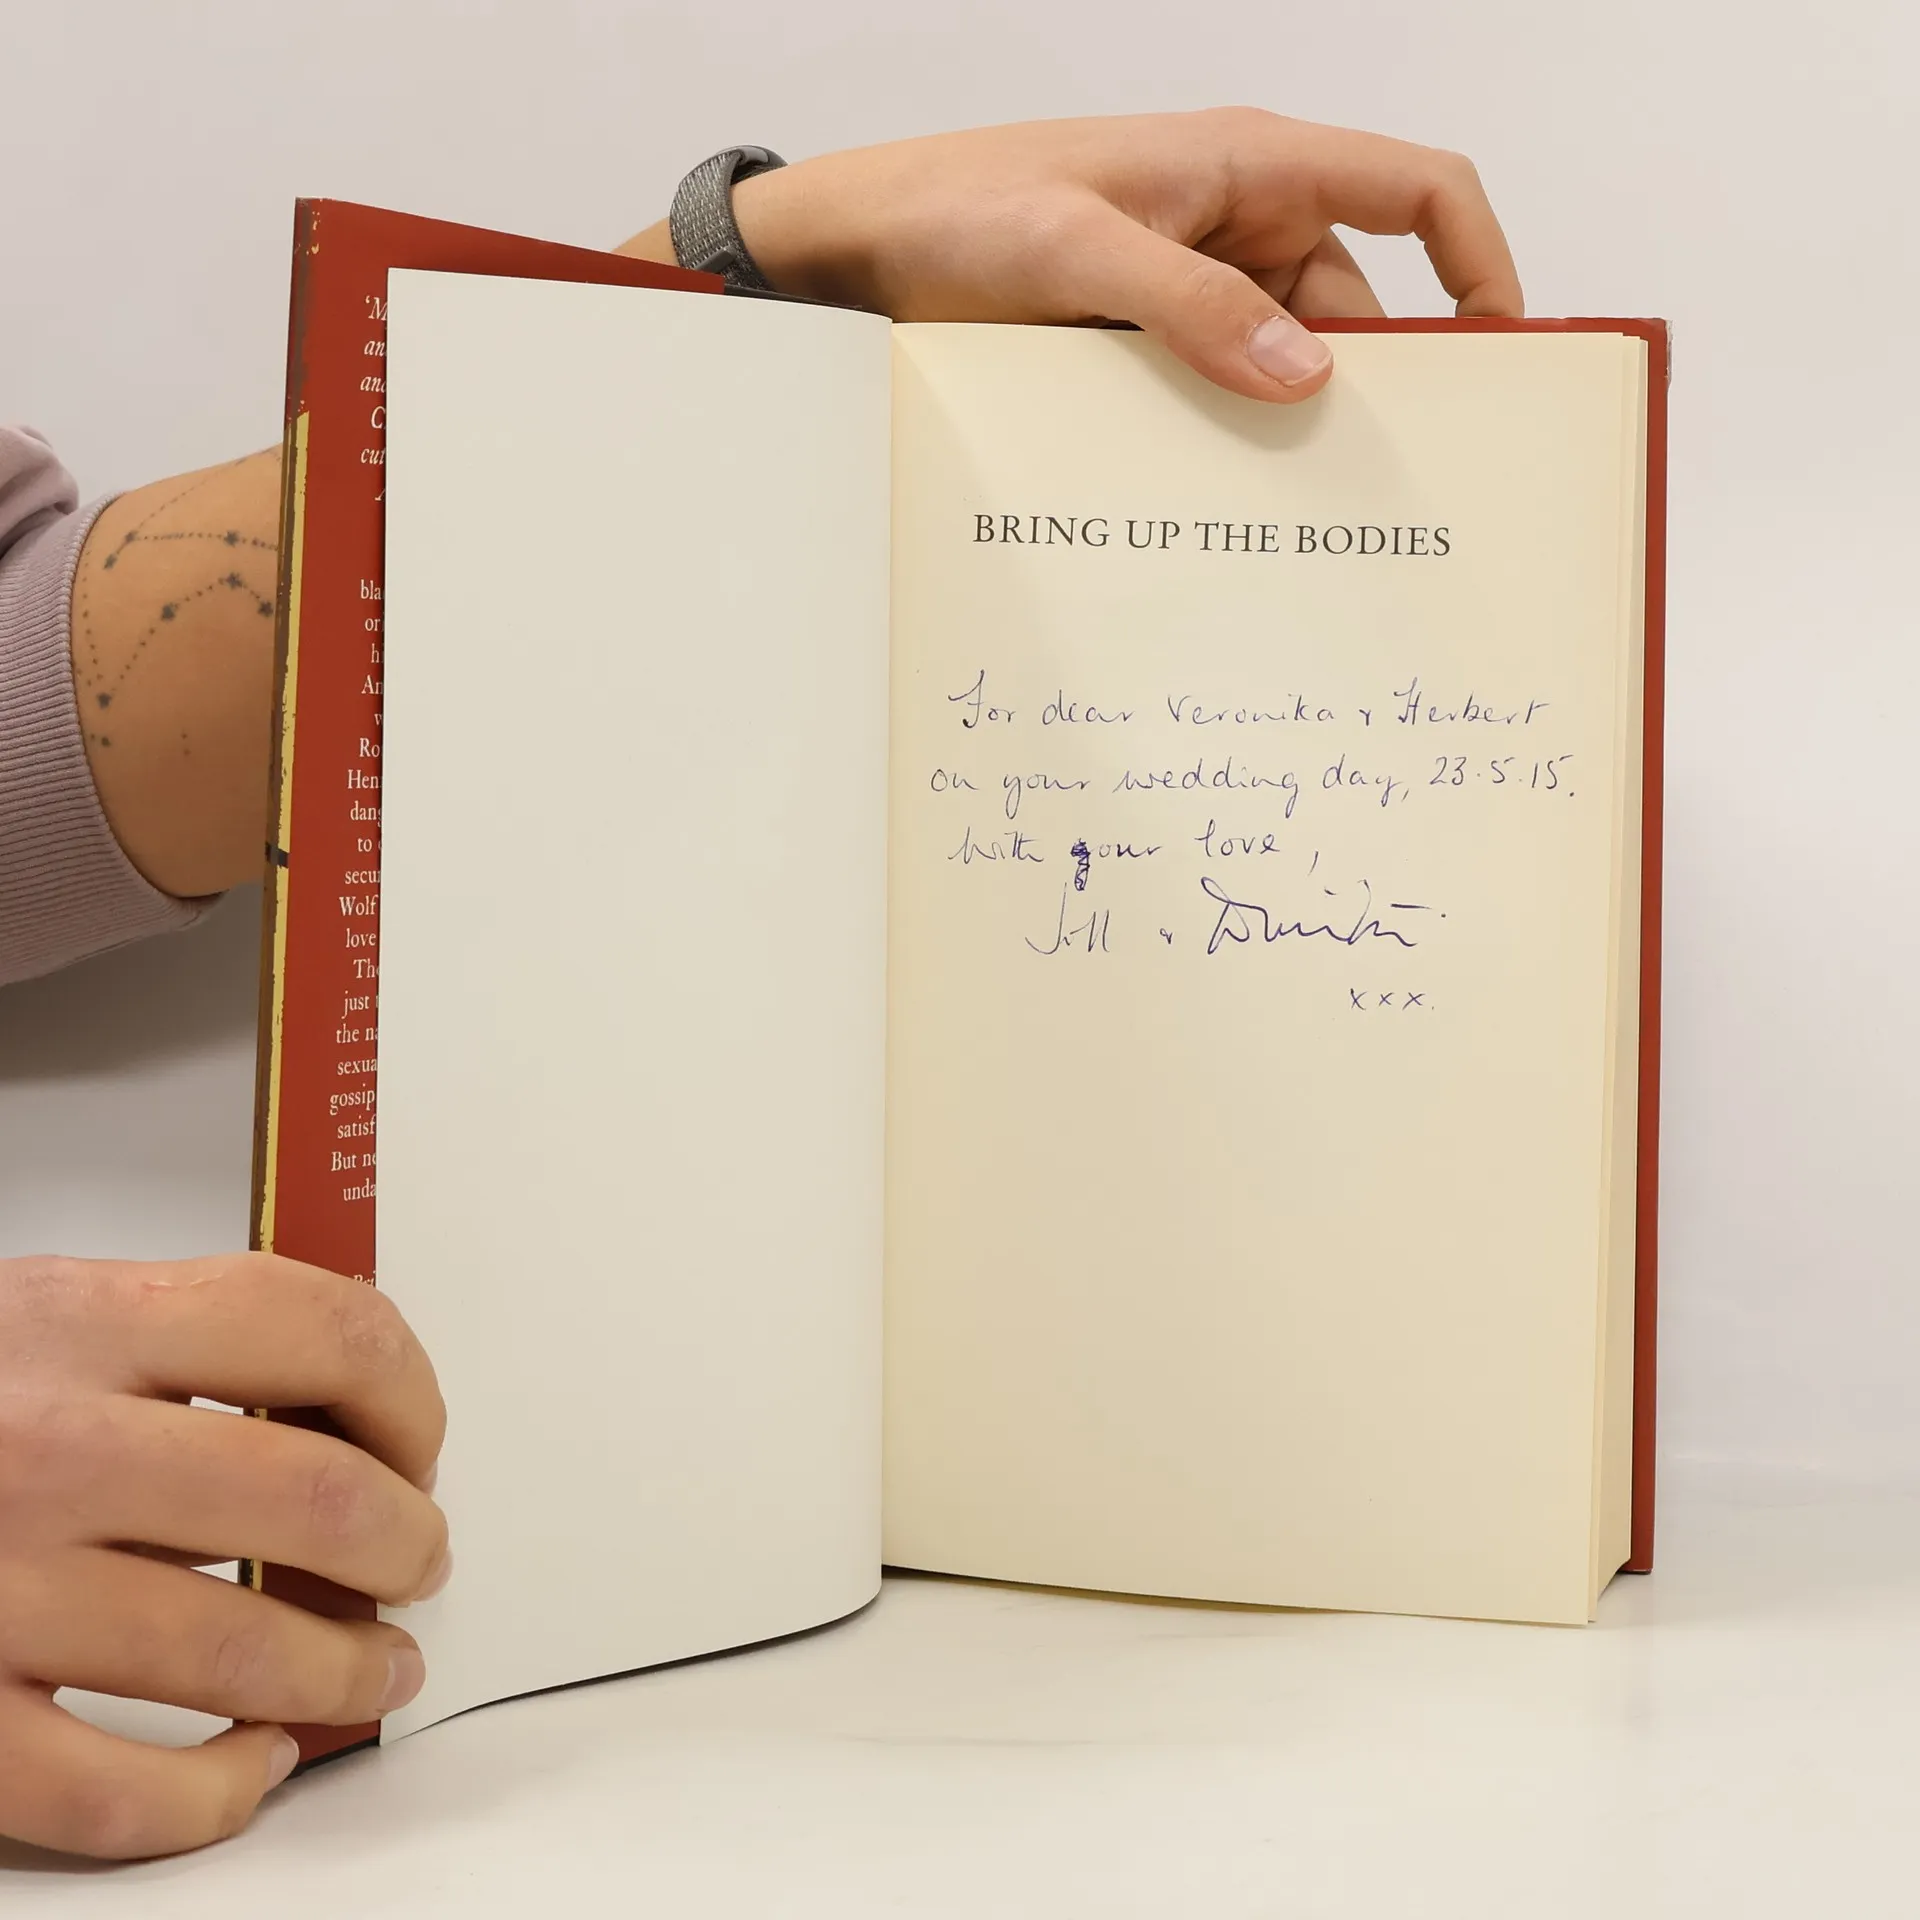 'M
an
and
C
cut
A
bla
ori
hi
An
w
Ro
Hen
dang
to
secu
Wolf
love
The
just
the na
sexua
gossip
satisf
But ne
unda
Bri
BRING UP THE BODIES
For dear Veronika & Herbert
on your wedding day, 23.5.15.
With our love,
Jill &
xxx.